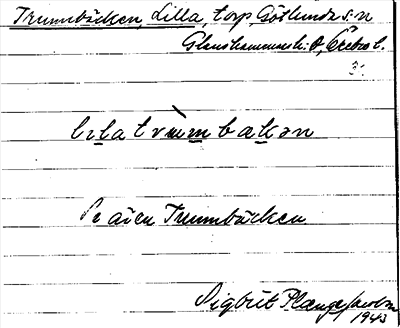 Trumbäcken, Lilla, torp, Götlunda s:n
Glanshammars h:d, Örebro l.
3.
lila trumbäkən
Se även Trumbäcken
Sigbrit Plænge Jacobson
1943